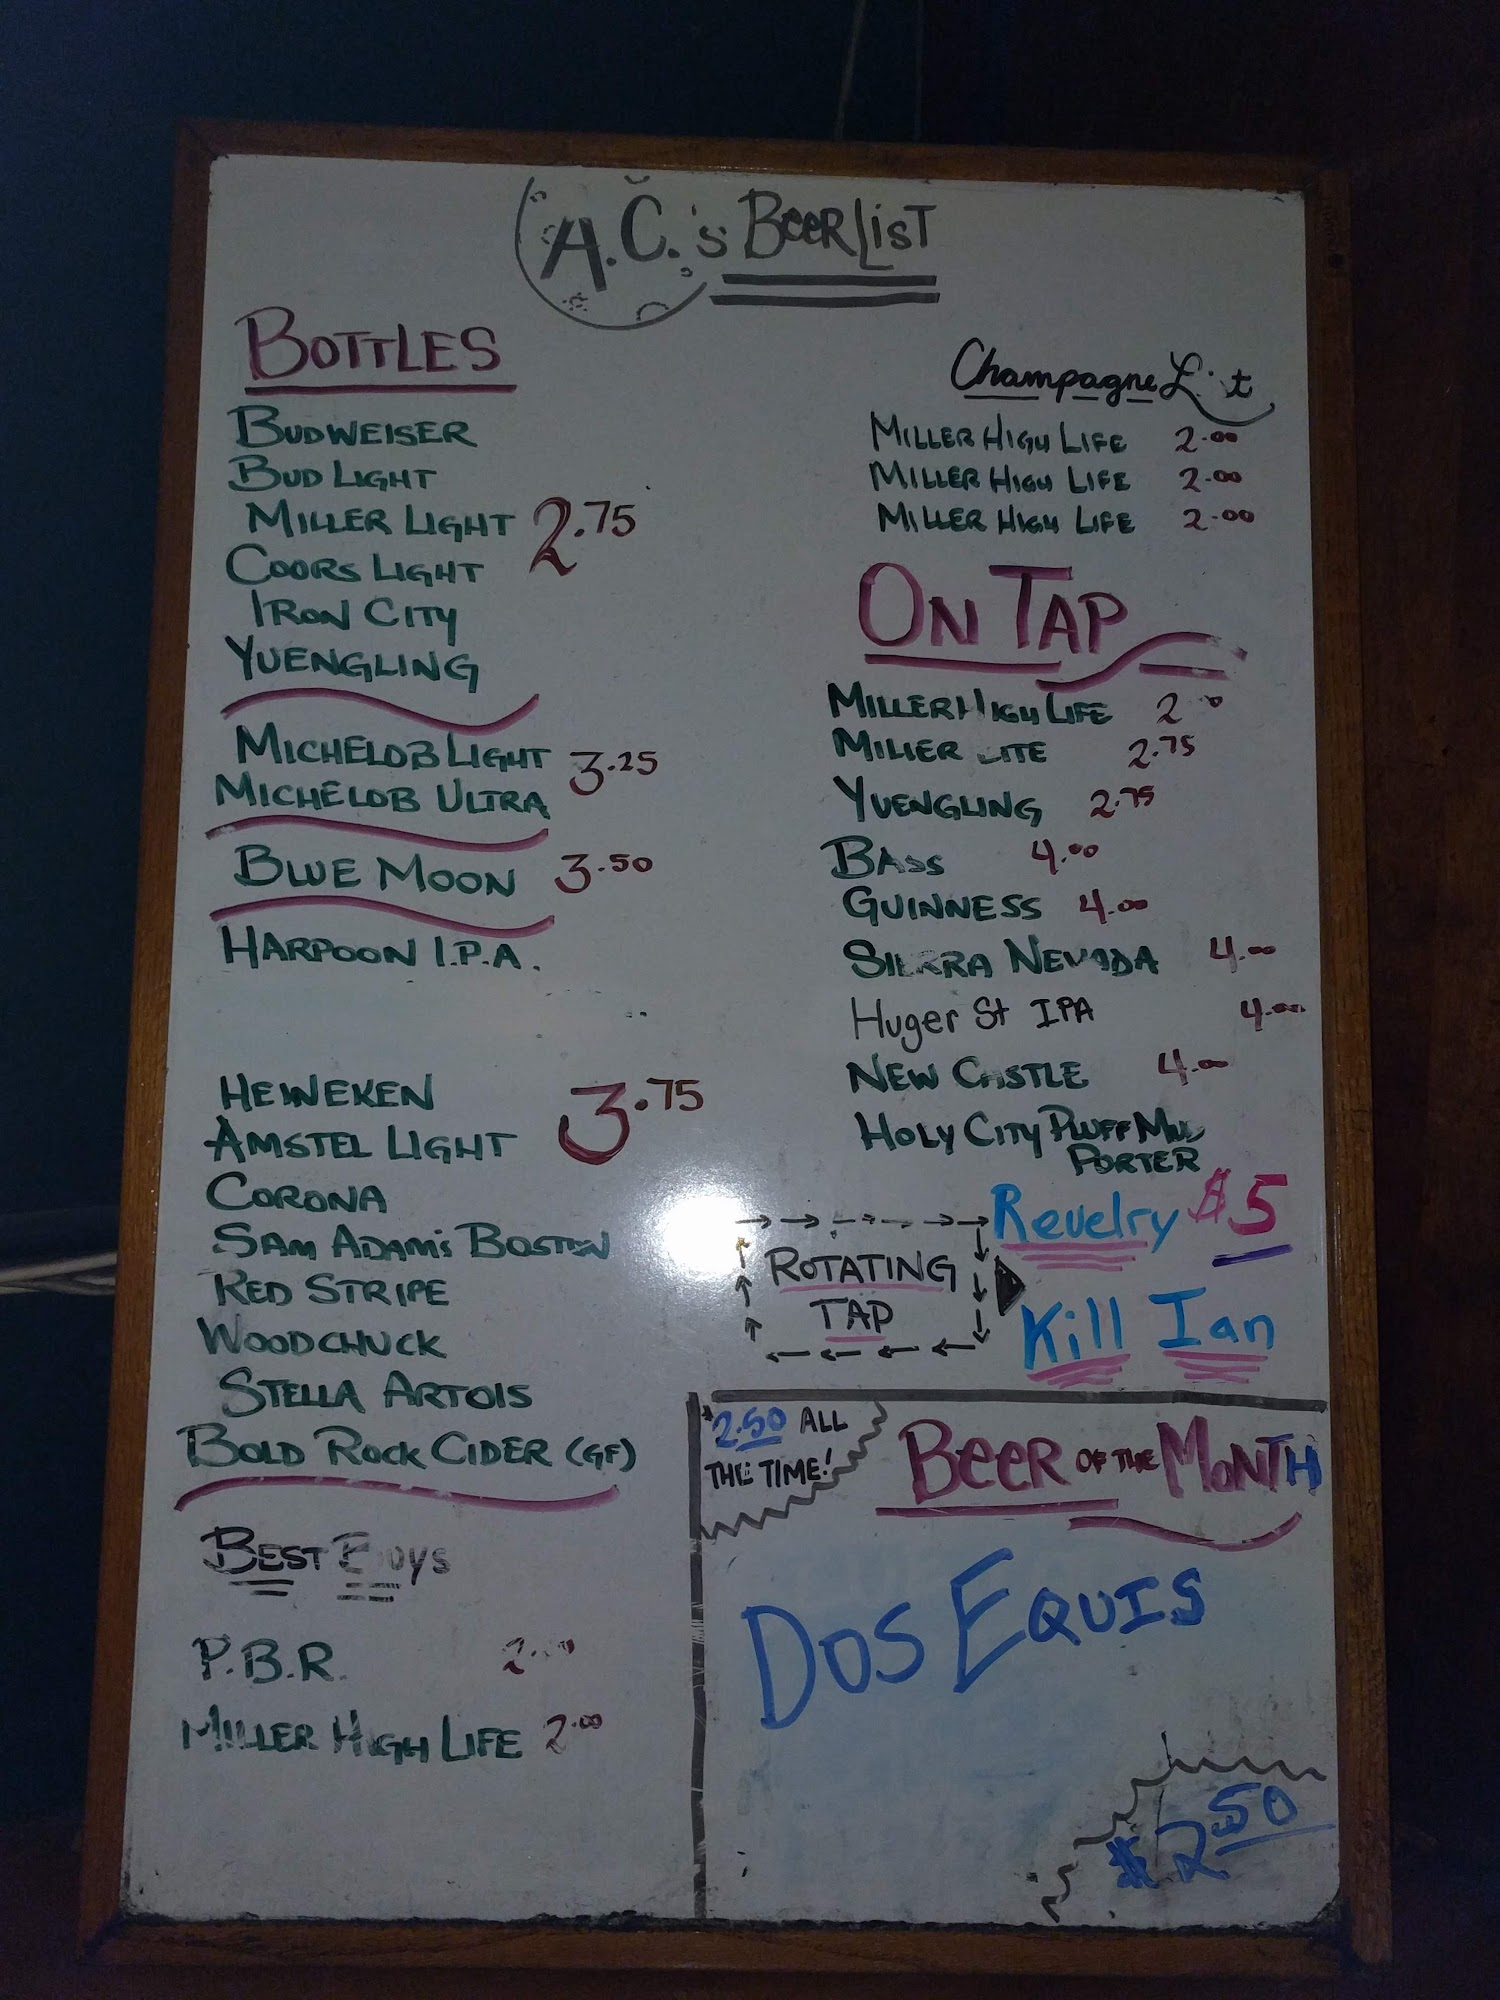 A.C.'s BEER LIST
BOTTLES
BUDWEISER
BUD LIGHT
MILLER LIGHT 2.75
COORS LIGHT
IRON CITY
YUENGLING
MICHELOB LIGHT 3.25
MICHELOB ULTRA
BLUE MOON 3.50
HARPOON I.P.A.
HEINEKEN 3.75
AMSTEL LIGHT
CORONA
SAM ADAM'S BOSTON
RED STRIPE
WOODCHUCK
STELLA ARTOIS
BOLD ROCK CIDER (GF)
BEST Buys
P.B.R. 2.00
MILLER HIGH LIFE 2.00
Champagne List
MILLER HIGH LIFE 2.00
MILLER HIGH LIFE 2.00
MILLER HIGH LIFE 2.00
ON TAP
MILLER HIGH LIFE 2
MILLER LITE 2.75
YUENGLING 2.75
BASS 4.00
GUINNESS 4.00
SIERRA NEVADA 4.00
Huger St IPA 4.00
NEW CASTLE 4.00
HOLY CITY PLUFF MUD
PORTER
ROTATING
TAP
Revelry $5
Kill Ian
$2.50 ALL
THE TIME!
BEER OF THE MONTH
DOS EQUIS
$2.50